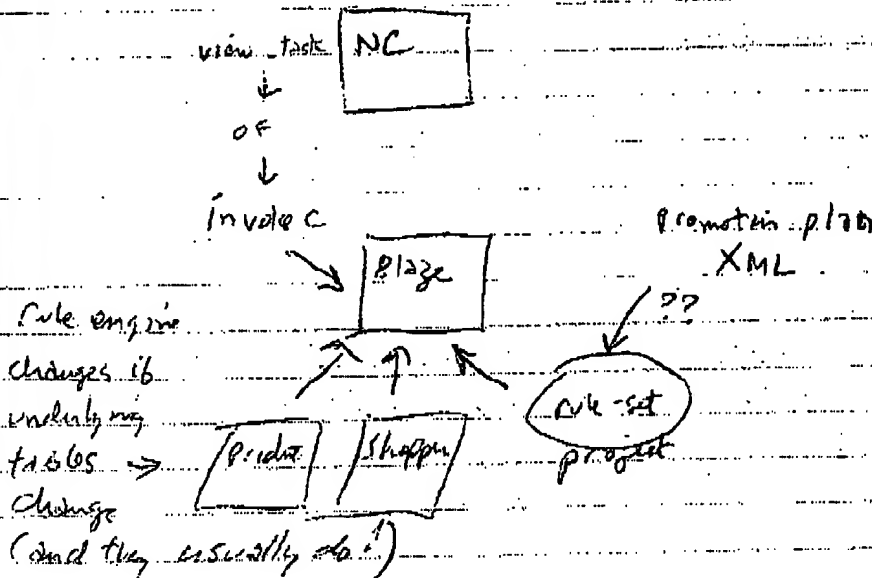 view task
NC
OF
invoke C
Promotion plan
XML
Blaze
??
rule engine
changes if
underlying
tables
change
(and they usually do!)
Product
Shopper
rule-set
project